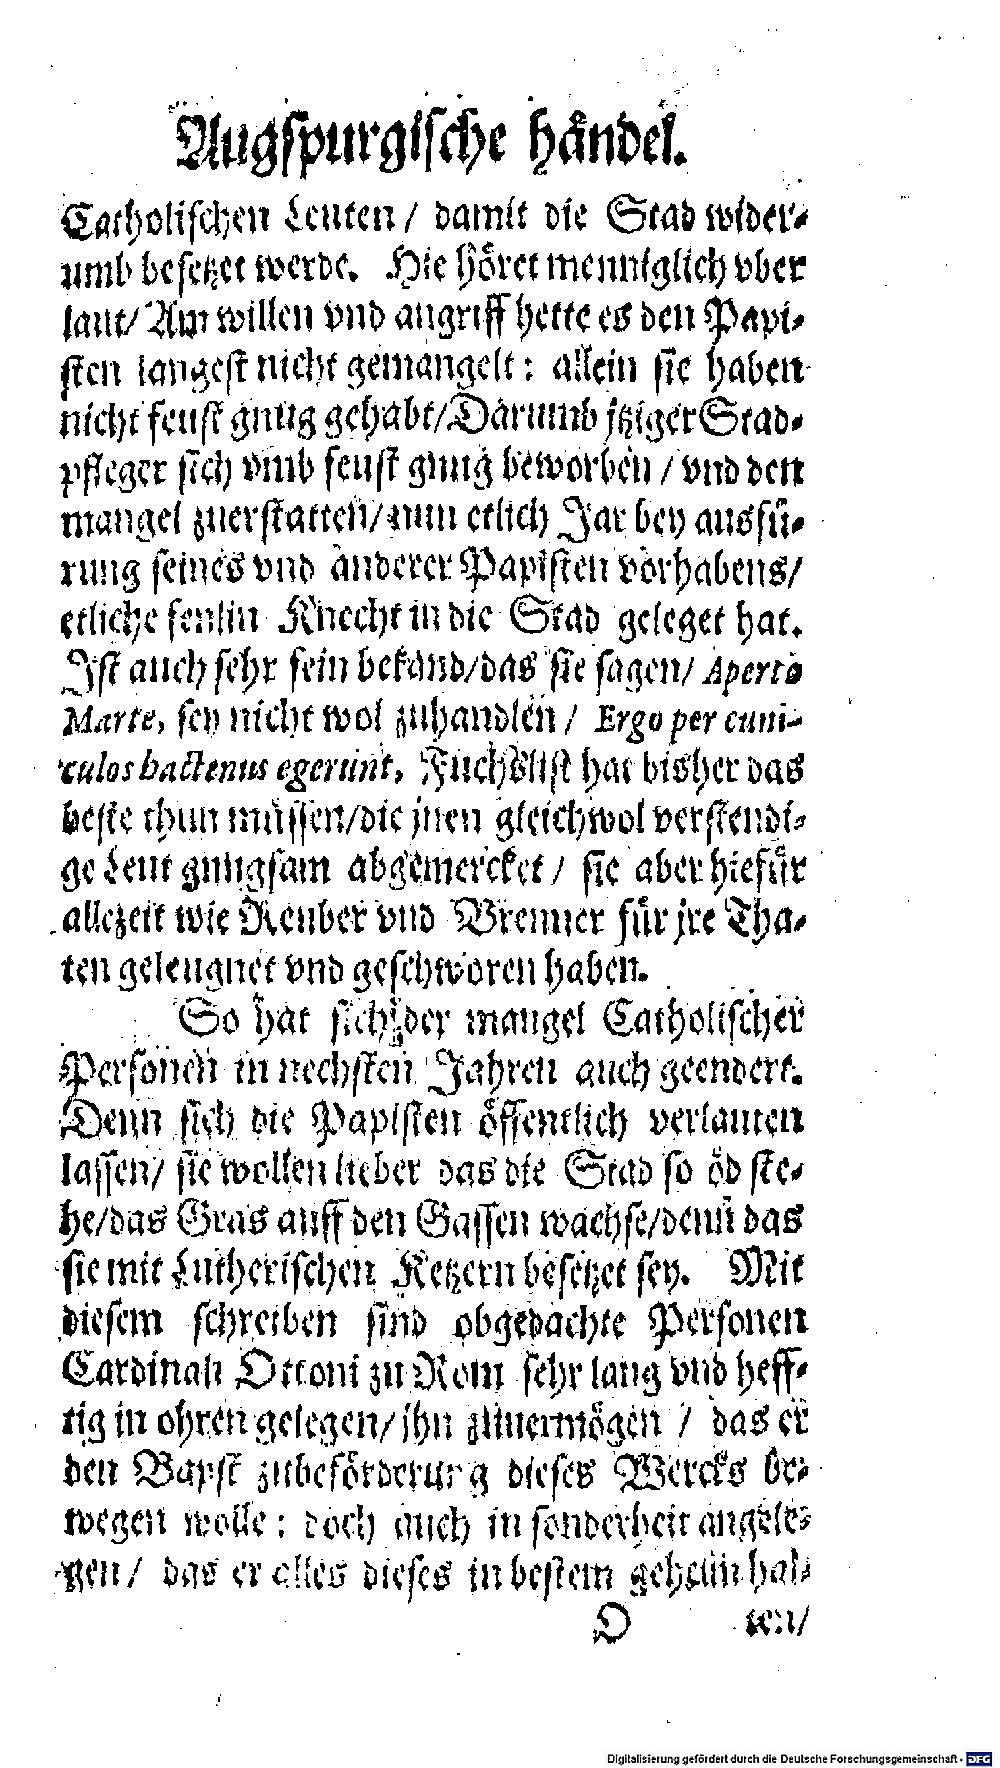 Augspurgische händel.
Catholischen Leuten / damit die Stad wider-
umb besetzet werde. Hie höret menniglich vber
laut / Am willen vnd angriff hette es den Papi-
sten langest nicht gemangelt : allein sie haben
nicht feust gnug gehabt / Darumb jtziger Stad-
pfleger sich vmb feust gnug beworben / vnd den
mangel zuerstatten / nun etlich Jar bey ausfü-
rung seines vnd anderer Papisten vorhabens /
etliche fenlin Knecht in die Stad geleget hat.
Ist auch sehr fein bekand / das sie sagen / Aperto
Marte, sey nicht wol zuhandlen / Ergo per cuni-
culos hactenus egerunt, Fuchslist hat bisher das
beste thun müssen / die jnen gleichwol verstendi-
ge Leut gnugsam abgemercket / sie aber hiefür
allezeit wie Reuber vnd Brenner für jre Tha-
ten geleugnet vnd geschworen haben.
So hat sich der mangel Catholischer
Personen in nechsten Jahren auch geendert.
Denn sich die Papisten öffentlich verlauten
lassen / sie wollen lieber das die Stad so öd ste-
he / das Gras auff den Gassen wachse / denn das
sie mit Lutherischen Ketzern besetzet sey. Mit
diesem schreiben sind obgedachte Personen
Cardinali Ottoni zu Rom sehr lang vnd heff-
tig in ohren gelegen / jhn zuuermögen / das er
den Bapst zubeförderung dieses Wercks be-
wegen wolle : doch auch in sonderheit angele-
gen / das er alles dieses in bestem geheim hal-
O ten /
Digitalisierung gefördert durch die Deutsche Forschungsgemeinschaft - DFG